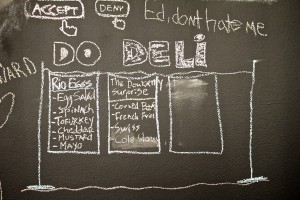 ACCEPT
DENY
Ed. dont hate me
DO DELI
RIO EGGS
- Egg Salad
- Spinach
- Tofurkey
- Cheddar
- Mustard
- Mayo
The Downtown
Surprise
- Corned Beef
- French Fries
- Swiss
- Cole Slaw